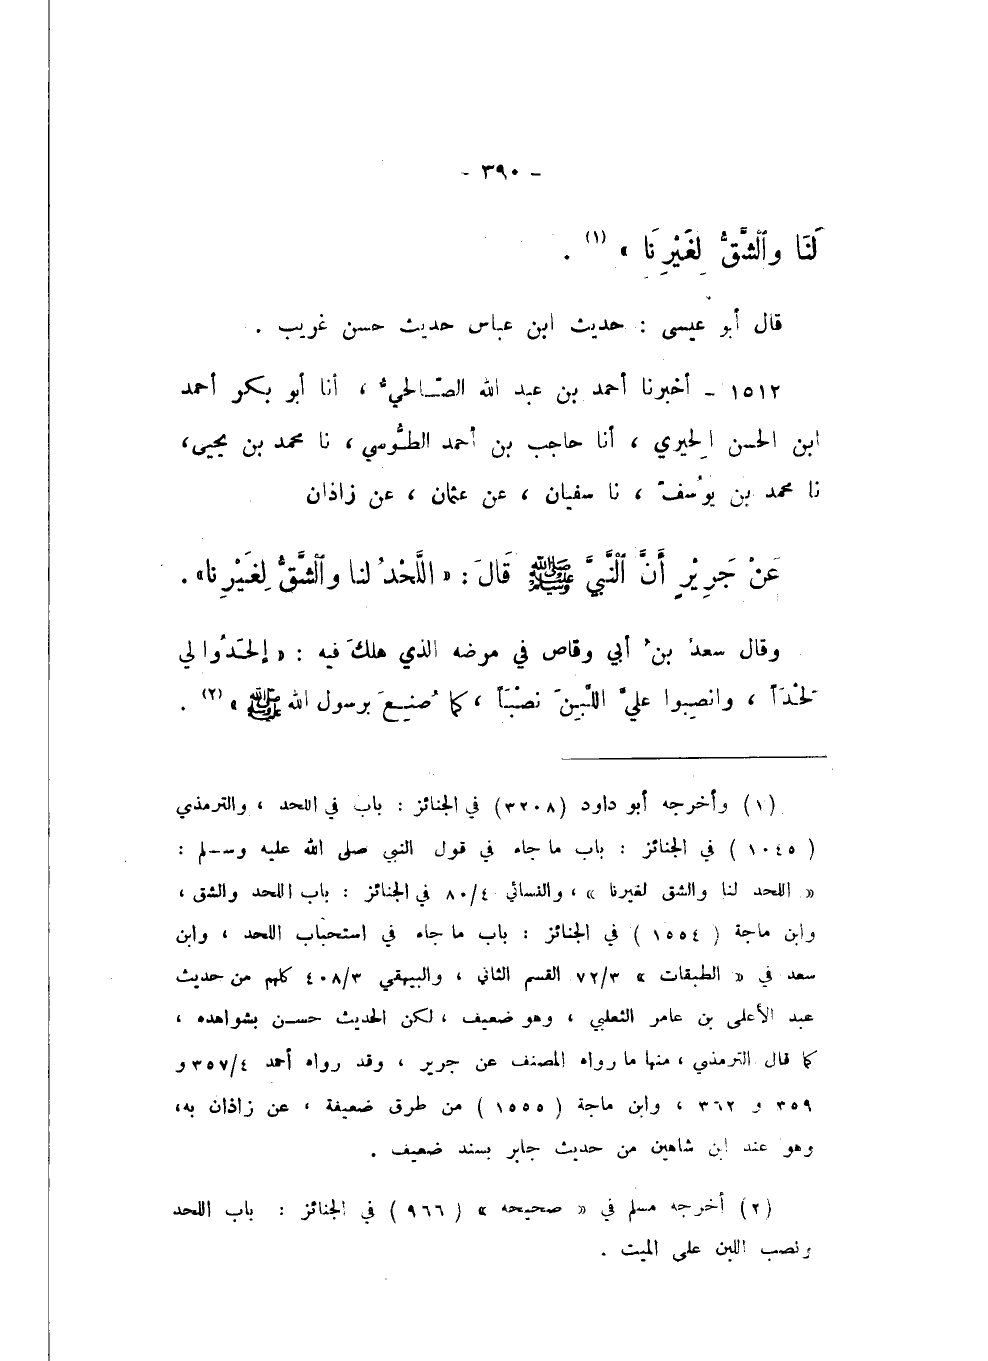 - ٣٩٠ -
لَنَا وٱلشَّقُّ لِغَيْرِنَا » (١) .
قال أبو عيسى : حديث ابن عباس حديث حسن غريب .
١٥١٢ - أخبرنا أحمد بن عبد الله الصّالحيُّ ، أنا أبو بكر أحمد
ابن الحسن الحِيري ، أنا حاجب بن أحمد الطُّوسي ، نا محمد بن يحيى ،
نا محمد بن يوسُف ، نا سفيان ، عن عثمان ، عن زاذان
عَنْ جَرِيْرٍ أَنَّ ٱلنَّبيَّ ﷺ قَالَ : « اللَّحْدُ لنا وٱلشَّقُّ لِغَيْرِنا» .
وقال سعدُ بنُ أبي وقاص في مرضه الذي هلكَ فيه : « إلحَدُوا لي
لَحْدَاً ، وانصِبوا عليَّ اللَّبِنَ نصْبَاً ، كما صُنِعَ برسول الله ﷺ » (٢) .
(١) وأخرجه أبو داود (٣٢٠٨) في الجنائز : باب في اللحد ، والترمذي
( ١٠٤٥ ) في الجنائز : باب ما جاء في قول النبي صلى الله عليه وسلم :
« اللحد لنا والشق لغيرنا » ، والنسائي ٨٠/٤ في الجنائز : باب اللحد والشق ،
وابن ماجة ( ١٥٥٤ ) في الجنائز : باب ما جاء في استحباب اللحد ، وابن
سعد في « الطبقات » ٧٢/٣ القسم الثاني ، والبيهقي ٤٠٨/٣ كلهم من حديث
عبد الأعلى بن عامر الثعلبي ، وهو ضعيف ، لكن الحديث حسن بشواهده ،
كما قال الترمذي ، منها ما رواه المصنف عن جرير ، وقد رواه أحمد ٣٥٧/٤ و
٣٥٩ و ٣٦٢ ، وابن ماجة ( ١٥٥٥ ) من طرق ضعيفة ، عن زاذان به،
وهو عند ابن شاهين من حديث جابر بسند ضعيف .
(٢) أخرجه مسلم في « صحيحه » ( ٩٦٦ ) في الجنائز : باب اللحد
ونصب اللبن على الميت .